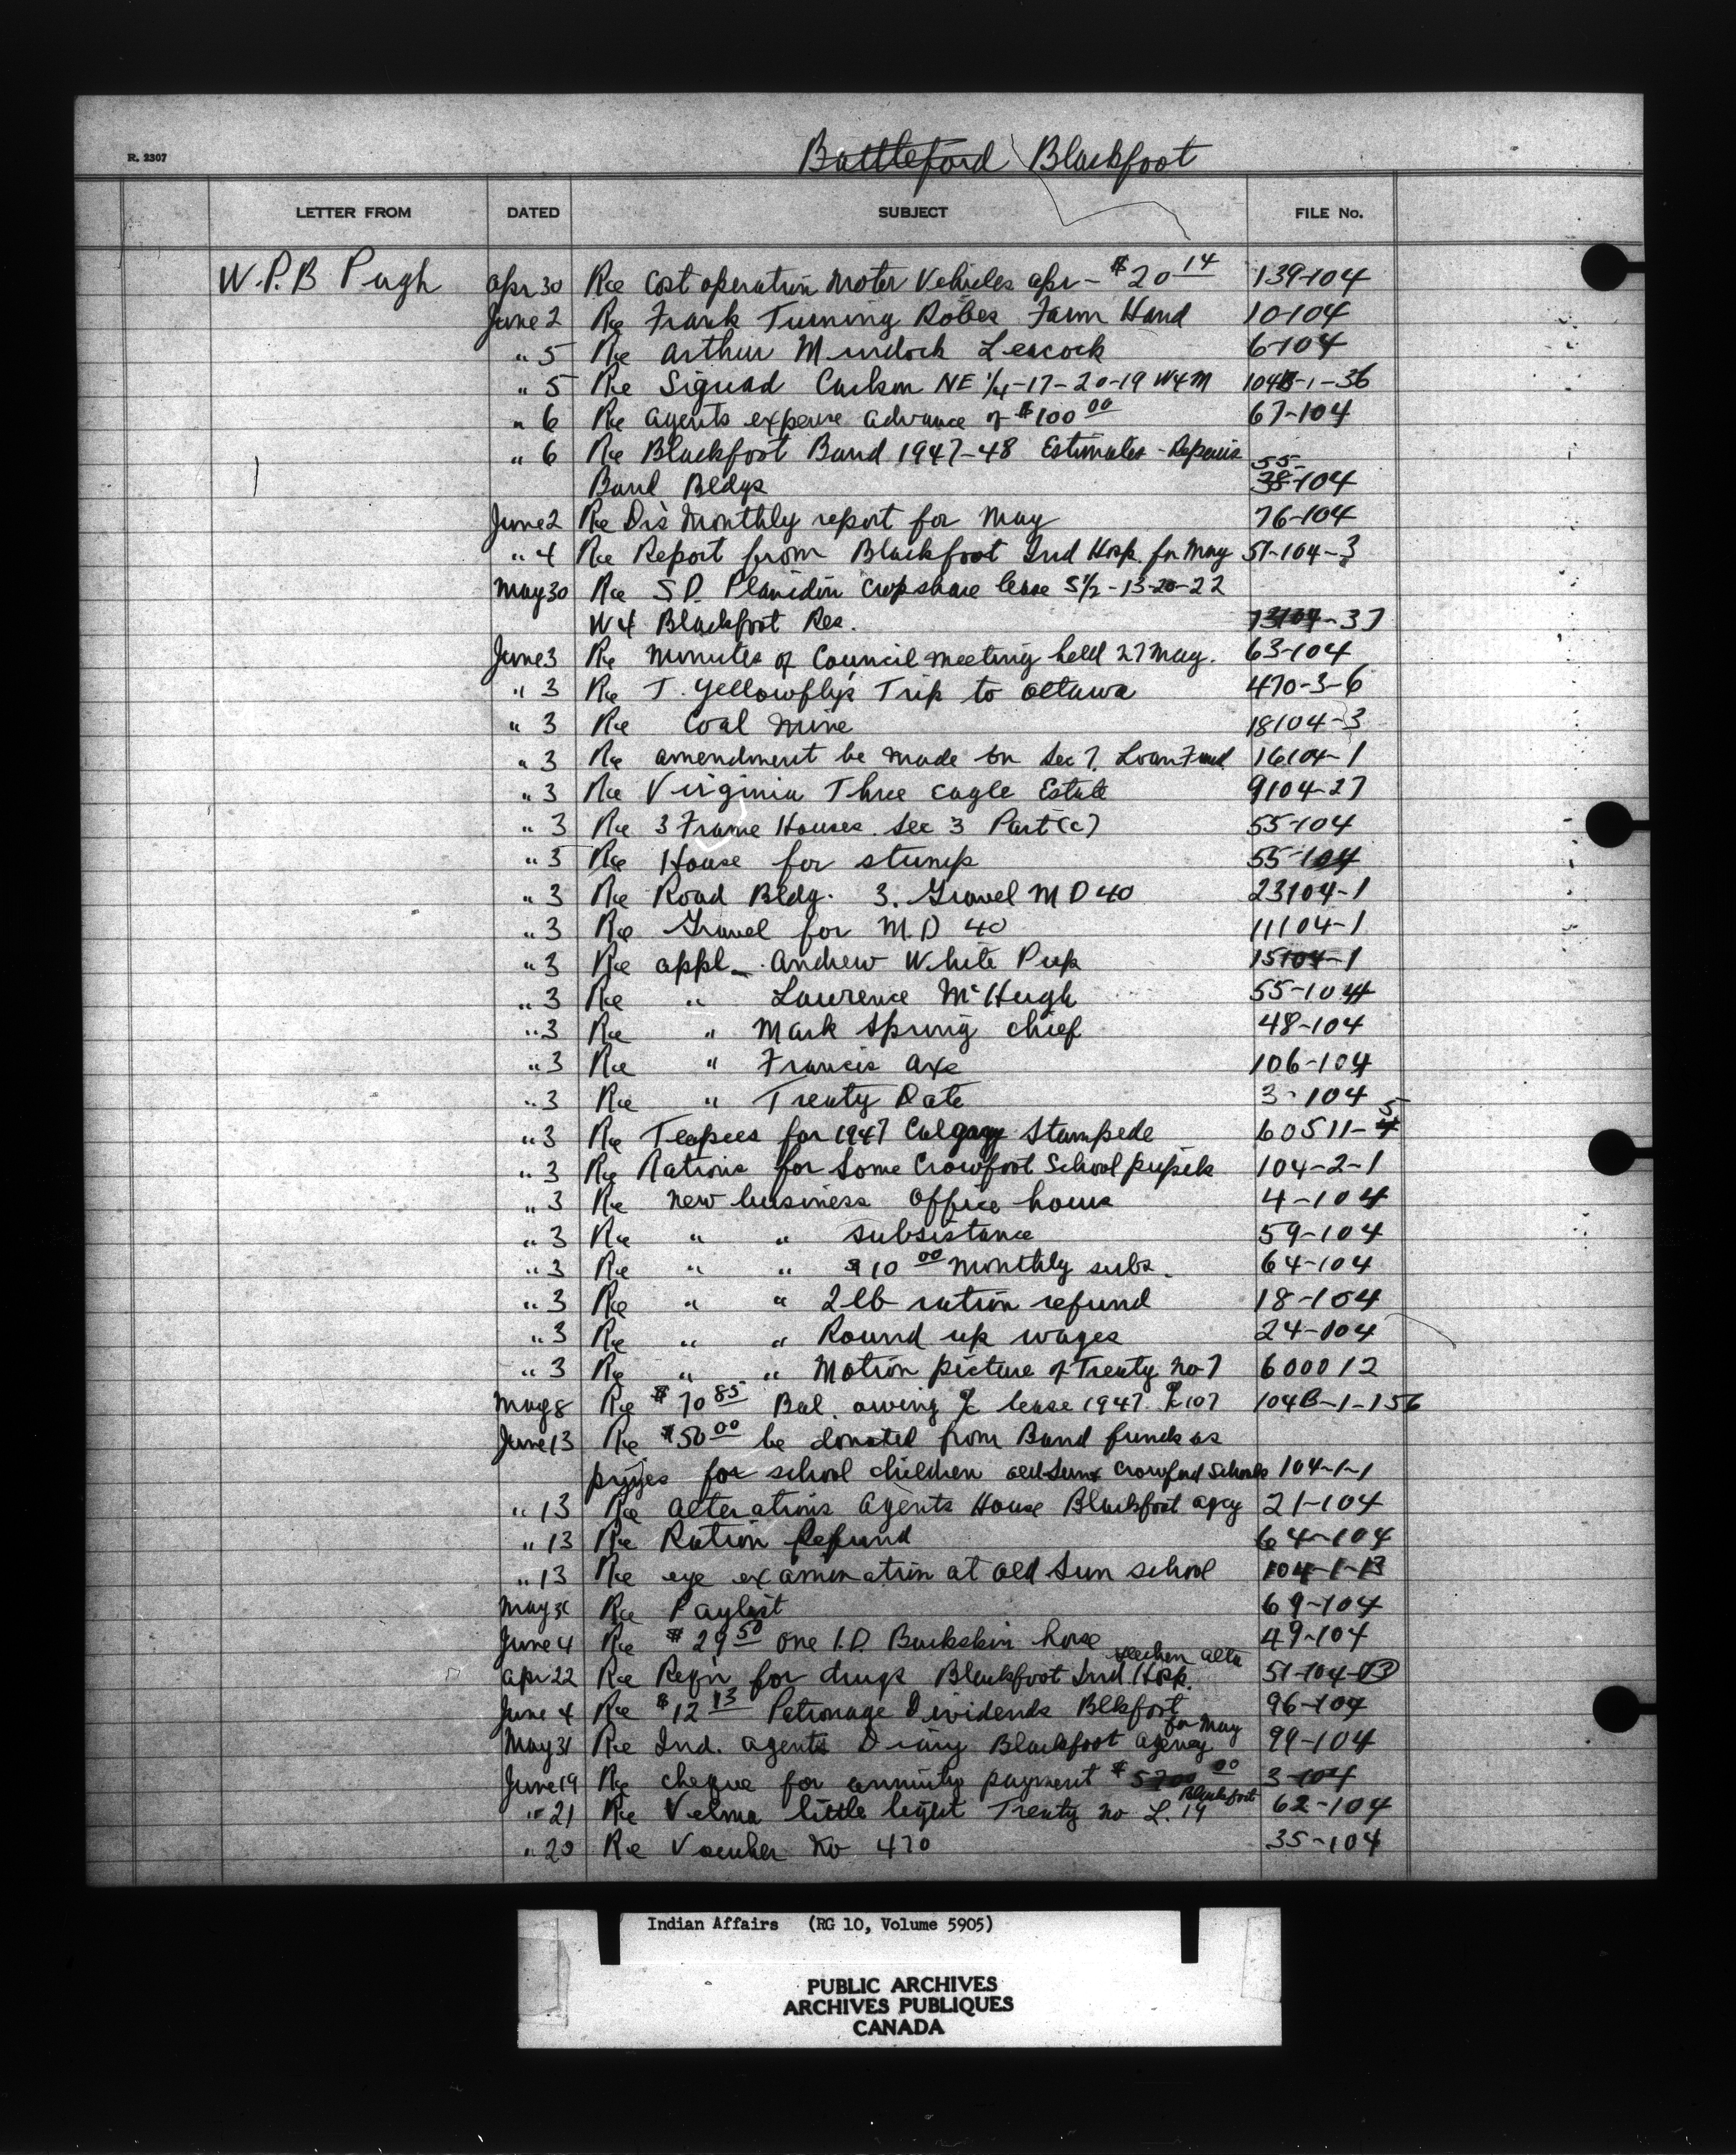 R. 2307
Battleford Blackfoot
LETTER FROM DATED SUBJECT FILE No.
W.P.B Pugh Apr 30 Re Cost operation Motor Vehicles Apr - $20 14 139-104
June 2 Re Frank Turning Robes Farm Hand 10-104
" 5 Re Arthur Murdoch Leacock 6-104
" 5 Re Siguad Carlson NE 1/4-17-20-19 W4M 104B-1-36
" 6 Re Agents expense advance of $100 00 67-104
" 6 Re Blackfoot Band 1947-48 Estimates - Repairs 55-
Band Bldgs 38-104
June 2 Re Dr's Monthly report for May 76-104
" 4 Re Report from Blackfoot Ind Hosp. for May 51-104-3
May 30 Re S.D. crop share lease S1/2-13-20-22
W4 Blackfoot Res. 13104-37
June 3 Re Minutes of Council Meeting held 27 May. 63-104
" 3 Re T. Yellowfly's Trip to Ottawa 470-3-6
" 3 Re Coal Mine 18104-3
" 3 Re amendment be made on Sec 7. Loan Fund 16104-1
" 3 Re Virginia Three Eagle Estate 9104-27
" 3 Re 3 Frame Houses. Sec 3 Part (c) 55-104
" 3 Re House for stump 55-104
" 3 Re Road Bldg. 3. Gravel M D 40 23104-1
" 3 Re Gravel for M.D 40 11104-1
" 3 Re appl - Andrew White Pup 15104-1
" 3 Re " Lawrence McHugh 55-104
" 3 Re " Mark Spring Chief 48-104
" 3 Re " Francis Axe 106-104
" 3 Re " Treaty Date 3-104
" 3 Re Teepees for 1947 Calgary Stampede 60511-4 5
" 3 Re Rations for Some Crowfoot School pupils 104-2-1
" 3 Re New business office hours 4-104
" 3 Re " " subsistance 59-104
" 3 Re " " $10 00 monthly subs. 64-104
" 3 Re " " 2 lb ration refund 18-104
" 3 Re " " Round up wages 24-104
" 3 Re " " Motion picture of Treaty No 7 600012
May 8 Re $70 85 Bal. owing % lease 1947. % 107 104B-1-156
June 13 Re $50 00 be donated from Band funds as
prizes for school children Old Sun & Crowfoot Schools 104-1-1
" 13 Re Alterations Agents House Blackfoot agcy 21-104
" 13 Re Ration Refund 64-104
" 13 Re eye examination at Old Sun school 104-1-13
May 31 Re Paylist 69-104
June 4 Re $29 50 One I.D. Buckskin horse 49-104
Gleichen Alta
Apr 22 Re Req'n for drugs Blackfoot Ind. Hosp. 51-104-13
June 4 Re $12 13 Patronage Dividends Blkfoot 96-104
for May
May 31 Re Ind. Agents Diary Blackfoot Agency 99-104
June 19 Re cheque for annuity payment $5700 00 3-104
Blackfoot
" 21 Re Velma little light Treaty No L. 19 62-104
" 20 Re Voucher No 470 35-104
Indian Affairs (RG 10, Volume 5905)
PUBLIC ARCHIVES
ARCHIVES PUBLIQUES
CANADA